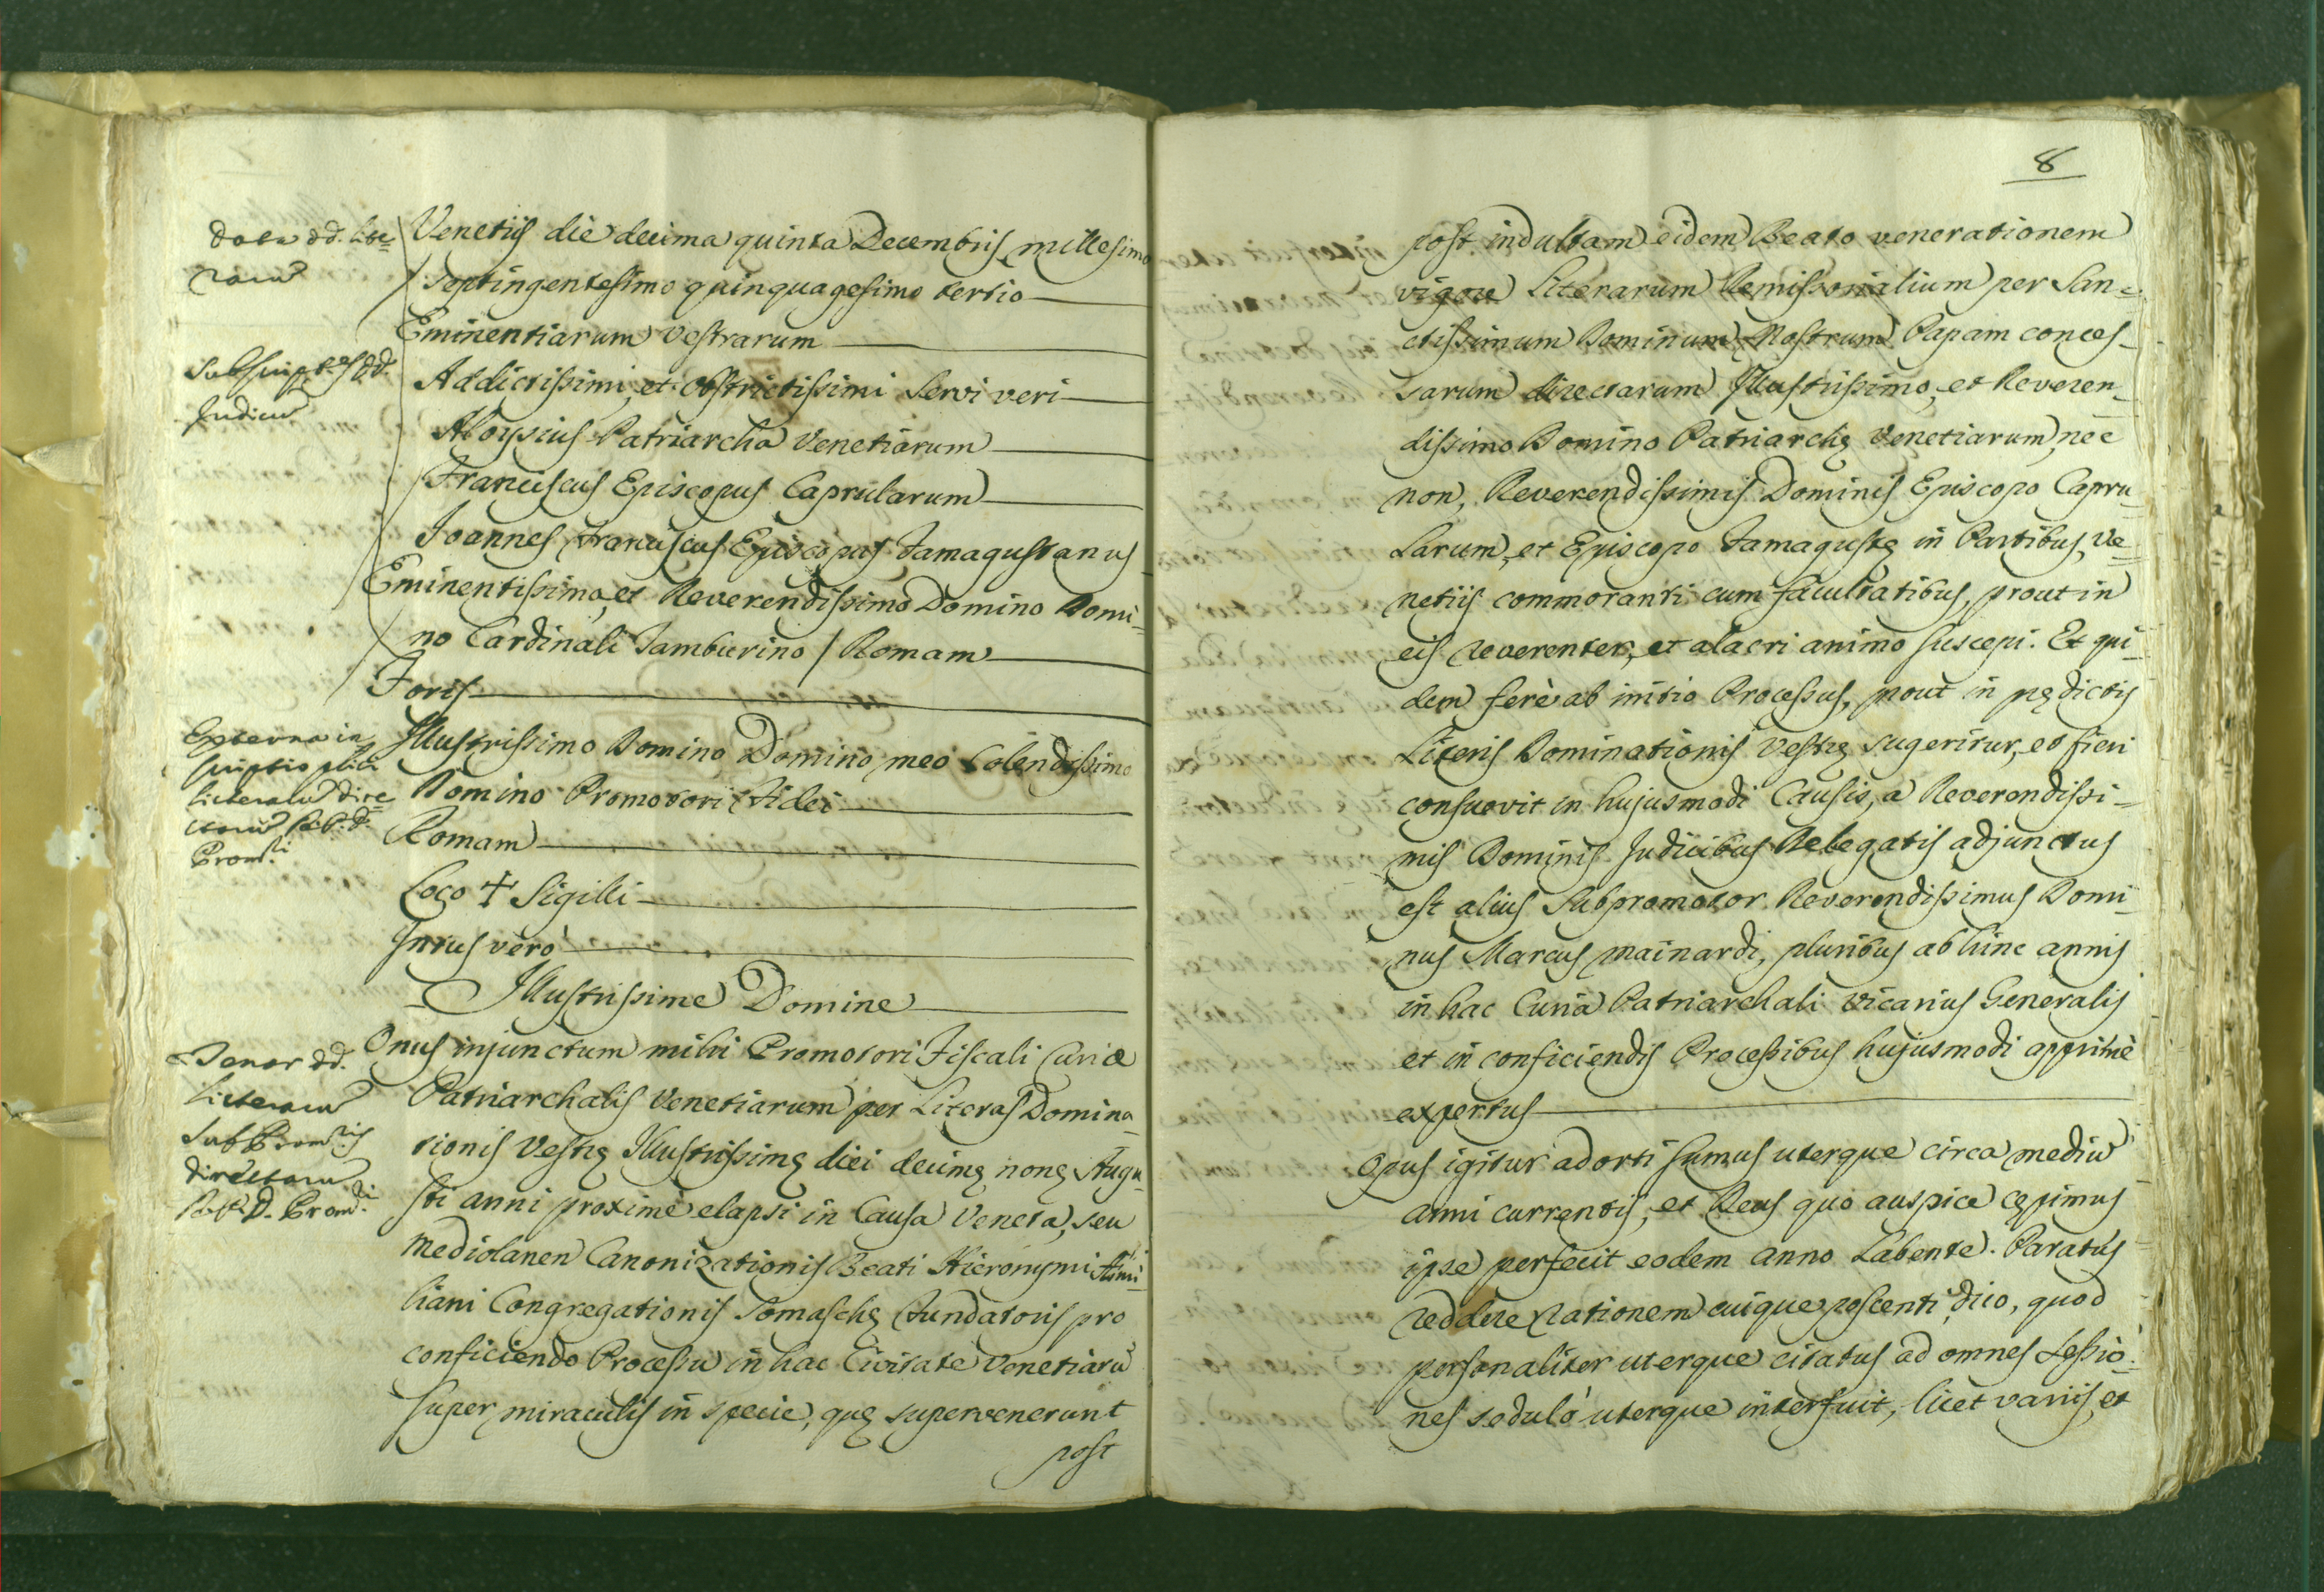 Data dd. Lite=
raru
Venetiis die decima quinta Decembris millesimo
septingentesimo quinquagesimo tertio
Eminentiarum Vestrarum
dd.
Judicu
Addictissimi, et obstrictissimi Servi veri
Aloysius Patriarcha Venetiarum
Franciscus Episcopus Caprularum
Joannes Franciscus Episcopus Famagustanus
Eminentissimo, et Reverendissimo Domino Domi=
no Cardinali Tamburino / Romam
Foris
Externa in
scriptio
literaru dire
ctaru R.P.D.
Prom.ri
Illustrissimo Domino Domino meo Colendissimo
Domino Promotori Fidei
Romam
Loco + Sigilli
Intus verò
Illustrissime Domine
Tenor dd.
Literaru
SubProm.ris
directaru
R.P.D. Prom.ri
Onus injunctum mihi Promotori Fiscali Curiæ
Patriarchalis Venetiarum per Literas Domina=
tionis Vestrę Illustrissimę diei decimę nonę Augu=
sti anni proximè elapsi in Causa Veneta, seu
Mediolanen Canonizationis Beati Hieronymi Æmi=
liani Congregationis Somaschę Fundatoris pro
conficiendo Processu in hac Civitate Venetiaru
super miraculis in specie, quę supervenerunt
post
8
post indultam eidem Beato venerationem
vigore Literarum Remissorialium per San=
ctissimum Dominum Nostrum Papam conces=
sarum directarum Illustrissimo, et Reveren=
dissimo Domino Patriarchę Venetiarum, nec
non, Reverendissimis Dominis Episcopo Capru=
larum, et Episcopo Famagustę in Partibus, Ve=
netiis commoranti cum facultatibus, prout in
eis reverenter, et alacri animo suscepi. Et qui=
dem ferè ab initio Processus, prout in pędictis
Literis Dominationis Vestrę sugeritur, et fieri
consuevit in hujusmodi Causis, a Reverendissi=
mis Dominis Judicibus Delegatis adjunctus
est alius Subpromotor Reverendissimus Domi=
nus Marcus Mainardi, pluribus ab hinc annis
in hac Curia Patriarchali Vicarius Generalis
et in conficiendis Processibus hujusmodi apprimè
expertus
Opus igitur adorti sumus uterque circa mediu
anni currentis, et Deus quo auspice cępimus
ipse perfecit eodem anno Labente. Paratus
reddere rationem cuique poscenti, dico, quod
personaliter uterque citatus ad omnes Sessio=
nes sedulò uterque interfuit, licet variis, et